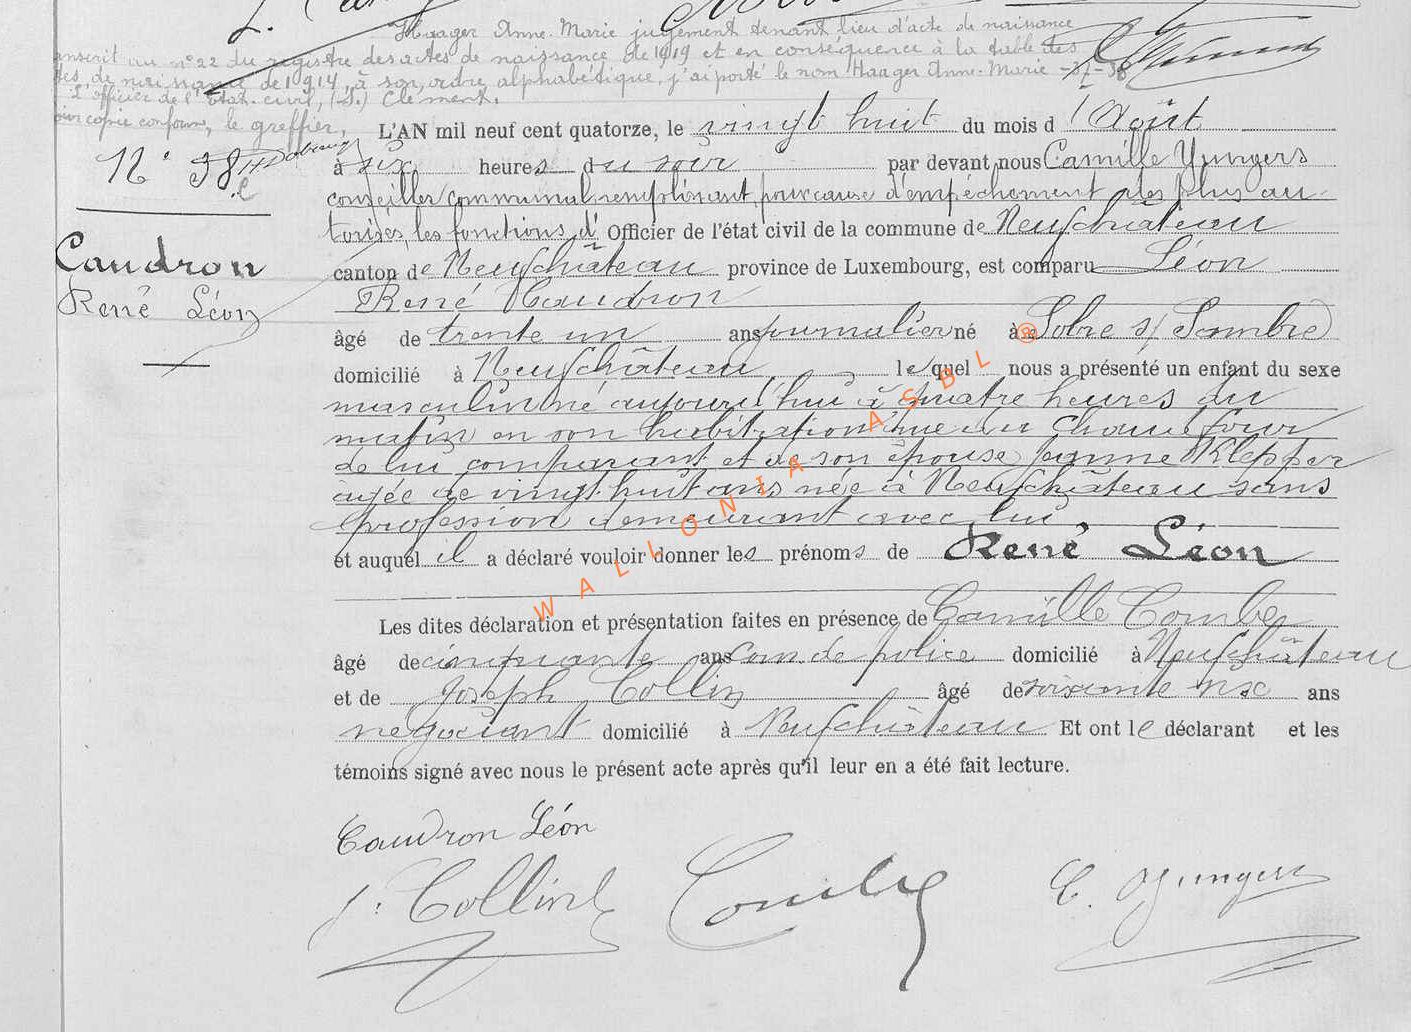 Haager Anne-Marie jugement tenant lieu d'acte de naissance
transcrit au n° 22 du registre des actes de naissance de 1919 et en conséquence à la table des
actes de naissance de 1914, à son ordre alphabétique, j'ai porté le nom Haager Anne-Marie
L'officier de l'Etat-civil, (S.) Clément.
Pour copie conforme, le greffier,
N° 38
Caudron
René Léon
L'AN mil neuf cent quatorze, le vingt huit du mois d'Août
à six heures du soir par devant nous Camille Yungers
conseiller communal remplissant, pour cause d'empêchement des plus au-
torisés, les fonctions d' Officier de l'état civil de la commune de Neufchâteau
canton de Neufchâteau province de Luxembourg, est comparu Léon
René Caudron
âgé de trente un ans journalier né à Solre s/ Sambre
domicilié à Neufchâteau lequel nous a présenté un enfant du sexe
masculin né aujourd'hui à quatre heures du
matin en son habitation rue du Chaud four
de lui comparant et de son épouse Jeanne Klepper
âgée de vingt-huit ans née à Neufchâteau sans
profession demeurant avec lui
et auquel il a déclaré vouloir donner les prénoms de René Léon
Les dites déclaration et présentation faites en présence de Camille Combe
âgé de cinquante ans com de police domicilié à Neufchâteau
et de Joseph Collin âgé de soixante six ans
negociant domicilié à Neufchâteau Et ont le déclarant et les
témoins signé avec nous le présent acte après qu'il leur en a été fait lecture.
Caudron Léon
J. Collin Combe C. Yungers
WALLONIA ASBL ®